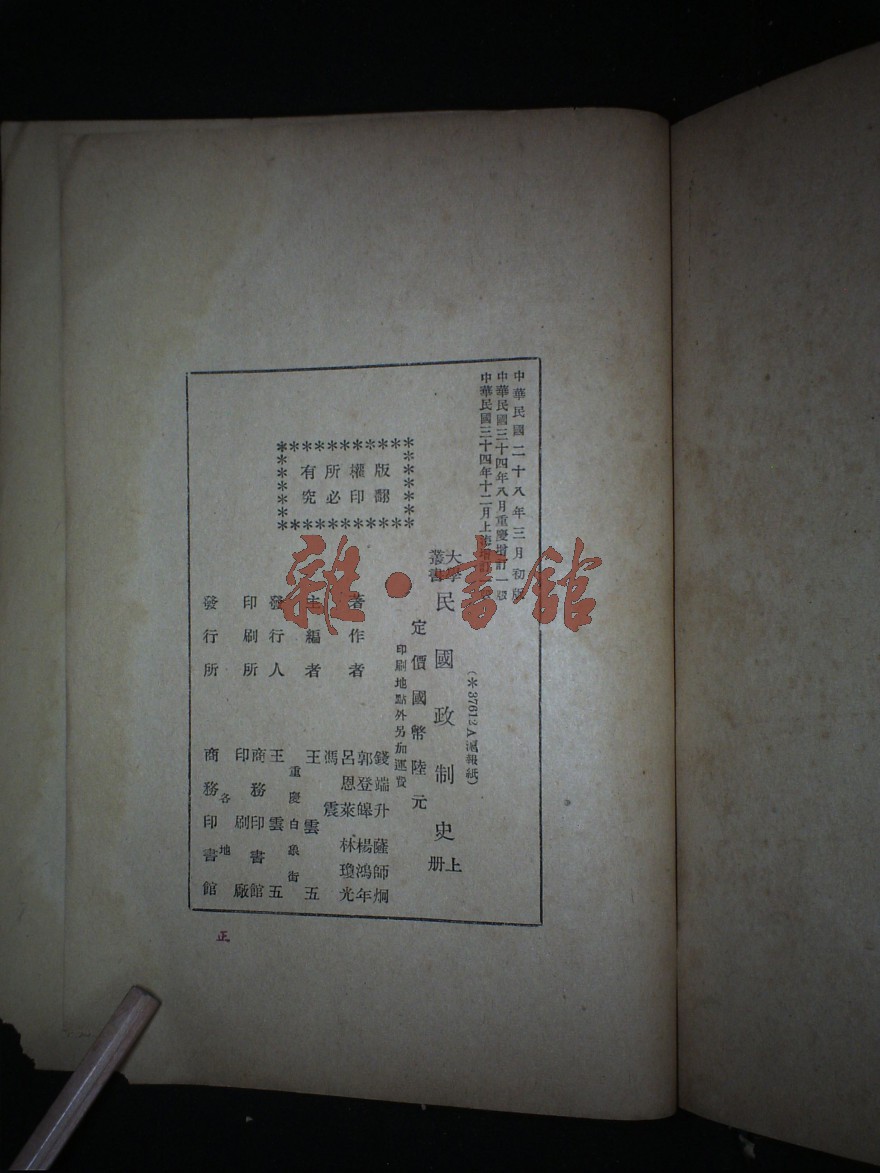 中華民國二十八年三月初版
中華民國三十四年八月重慶增訂一版
中華民國三十四年十二月上海增訂一版
(*37612A滬報紙)
大學
叢書
民國政制史
上
冊
定價國幣陸元
印刷地點外另加運費
版權所有
翻印必究
著作者
錢端升 薩師炯
郭登皞 楊鴻年
呂恩萊 林瓊光
馮震
主編者
王雲五
重慶白象街
發行人
王雲五
印刷所
商務印書館
印刷廠
發行所
各地
商務印書館
正
雜·書館